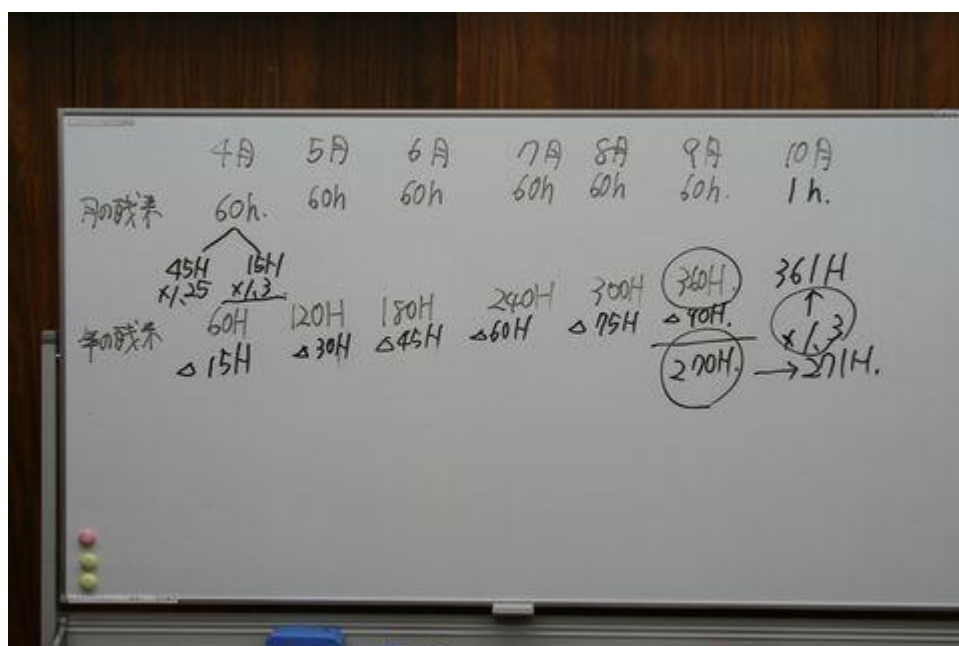 4月 5月 6月 7月 8月 9月 10月
月の残業 60h. 60h 60h 60h 60h 60h. 1h.
45H 15H
×1.25 ×1.3
年の残業 60H 120H 180H 240H 300H 360H. 361H
△15H △30H △45H △60H △75H △90H. ↑ ×1.3
270H. → 271H.